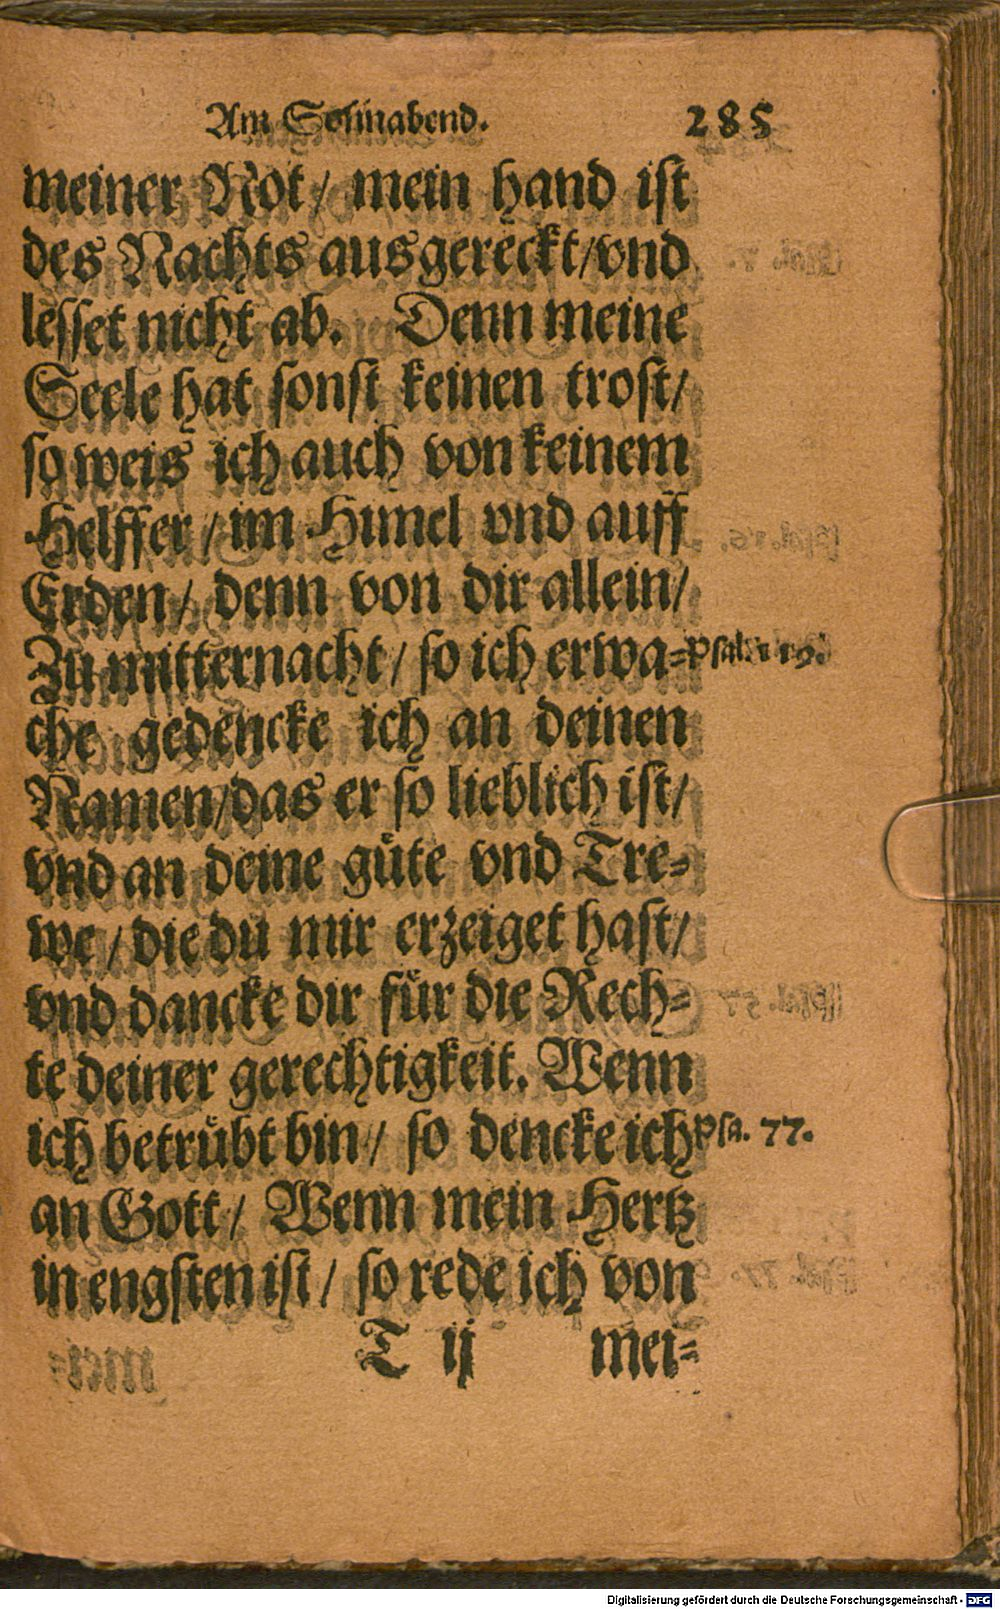 Am Sonnabend. 285
meiner Not / mein hand ist
des Nachts ausgereckt/vnd
lesset nicht ab. Denn meine
Seele hat sonst keinen trost/
so weis ich auch von keinem
Helffer / im Himel vnd auff
Erden / denn von dir allein /
Zu mitternacht / so ich erwa= Psal. 119.
che gedencke ich an deinen
Namen/das er so lieblich ist/
vnd an deine güte vnd Tre=
we / die du mir erzeiget hast/
vnd dancke dir für die Rech=
te deiner gerechtigkeit. Wenn
ich betrübt bin / so dencke ich Psa. 77.
an Gott / Wenn mein Hertz
in engsten ist / so rede ich von
T ij mei=
Digitalisierung gefördert durch die Deutsche Forschungsgemeinschaft - DFG